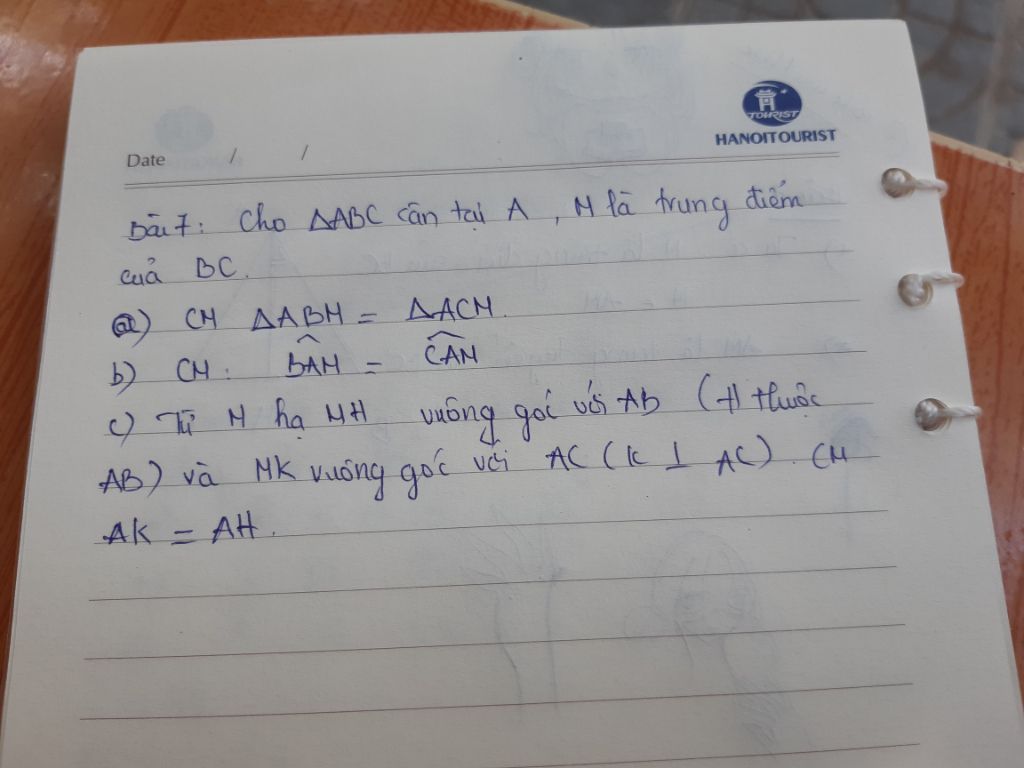 TOURIST
HANOITOURIST
Date / /
Bài 7: Cho ΔABC cân tại A, M là trung điểm
của BC.
a) CM ΔABM = ΔACM.
b) CM: \widehat{BAM} = \widehat{CAM}
c) Từ M hạ MH vuông góc với AB (H thuộc
AB) và MK vuông góc với AC (K ⊥ AC). CM
AK = AH.